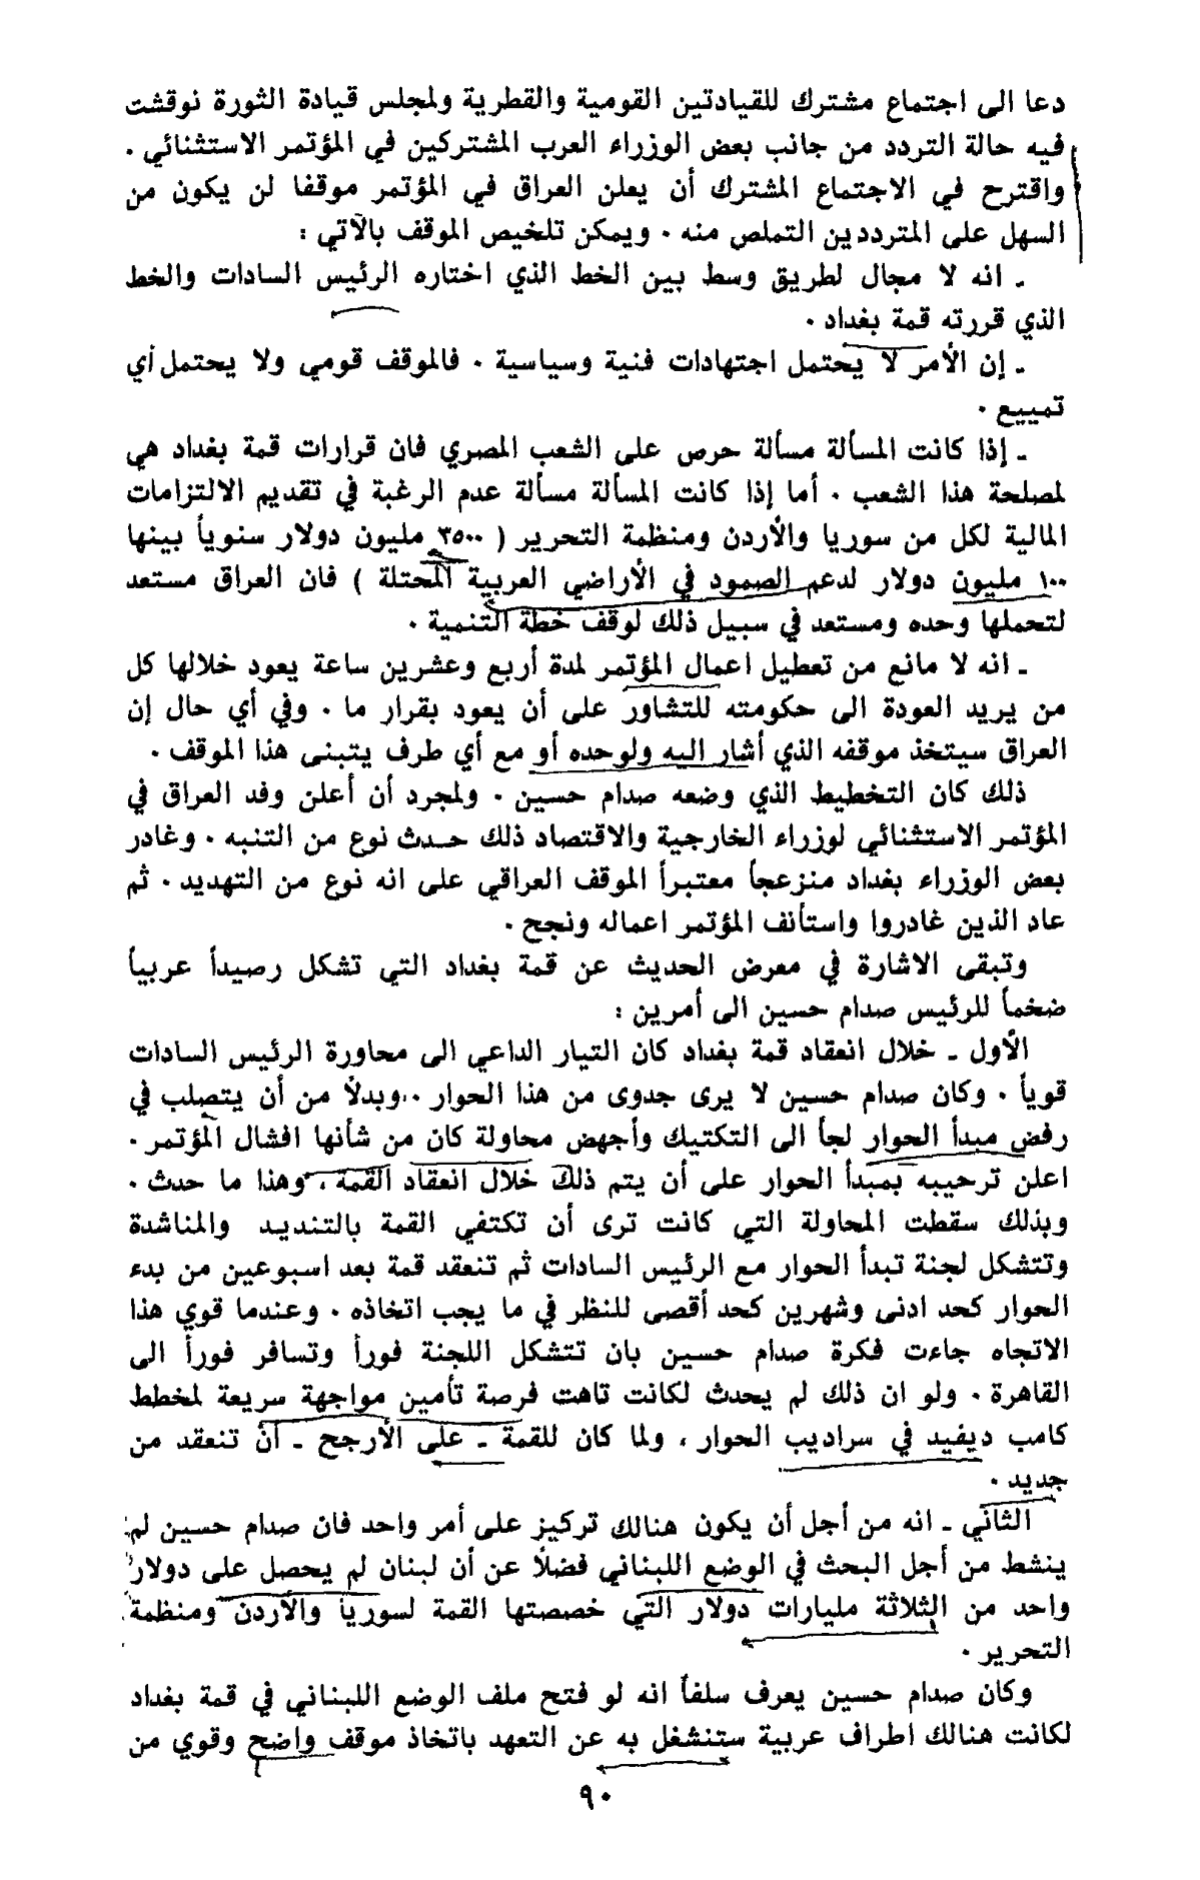 دعا الى اجتماع مشترك للقيادتين القومية والقطرية ولمجلس قيادة الثورة نوقشت
فيه حالة التردد من جانب بعض الوزراء العرب المشتركين في المؤتمر الاستثنائي .
واقترح في الاجتماع المشترك أن يعلن العراق في المؤتمر موقفا لن يكون من
السهل على المترددين التملص منه . ويمكن تلخيص الموقف بالآتي :
ـ انه لا مجال لطريق وسط بين الخط الذي اختاره الرئيس السادات والخط
الذي قررته قمة بغداد .
ـ إن الأمر لا يحتمل اجتهادات فنية وسياسية . فالموقف قومي ولا يحتمل أي
تمييع .
ـ إذا كانت المسألة مسألة حرص على الشعب المصري فان قرارات قمة بغداد هي
لمصلحة هذا الشعب . أما إذا كانت المسألة مسألة عدم الرغبة في تقديم الالتزامات
المالية لكل من سوريا والأردن ومنظمة التحرير ( ٣٥٠٠ مليون دولار سنوياً بينها
١٠٠ مليون دولار لدعم الصمود في الأراضي العربية المحتلة ) فان العراق مستعد
لتحملها وحده ومستعد في سبيل ذلك لوقف خطة التنمية .
ـ انه لا مانع من تعطيل اعمال المؤتمر لمدة أربع وعشرين ساعة يعود خلالها كل
من يريد العودة الى حكومته للتشاور على أن يعود بقرار ما . وفي أي حال إن
العراق سيتخذ موقفه الذي أشار اليه ولوحده أو مع أي طرف يتبنى هذا الموقف .
ذلك كان التخطيط الذي وضعه صدام حسين . ولمجرد أن أعلن وفد العراق في
المؤتمر الاستثنائي لوزراء الخارجية والاقتصاد ذلك حدث نوع من التنبه . وغادر
بعض الوزراء بغداد منزعجاً معتبراً الموقف العراقي على انه نوع من التهديد . ثم
عاد الذين غادروا واستأنف المؤتمر اعماله ونجح .
وتبقى الاشارة في معرض الحديث عن قمة بغداد التي تشكل رصيداً عربياً
ضخماً للرئيس صدام حسين الى أمرين :
الأول ـ خلال انعقاد قمة بغداد كان التيار الداعي الى محاورة الرئيس السادات
قوياً . وكان صدام حسين لا يرى جدوى من هذا الحوار . وبدلاً من أن يتصلب في
رفض مبدأ الحوار لجأ الى التكتيك وأجهض محاولة كان من شأنها افشال المؤتمر .
اعلن ترحيبه بمبدأ الحوار على أن يتم ذلك خلال انعقاد القمة ، وهذا ما حدث .
وبذلك سقطت المحاولة التي كانت ترى أن تكتفي القمة بالتنديد والمناشدة
وتتشكل لجنة تبدأ الحوار مع الرئيس السادات ثم تنعقد قمة بعد اسبوعين من بدء
الحوار كحد ادنى وشهرين كحد أقصى للنظر في ما يجب اتخاذه . وعندما قوي هذا
الاتجاه جاءت فكرة صدام حسين بان تتشكل اللجنة فوراً وتسافر فوراً الى
القاهرة . ولو ان ذلك لم يحدث لكانت تاهت فرصة تأمين مواجهة سريعة لمخطط
كامب ديفيد في سراديب الحوار ، ولما كان للقمة ـ على الأرجح ـ أن تنعقد من
جديد .
الثاني ـ انه من أجل أن يكون هنالك تركيز على أمر واحد فان صدام حسين لم
ينشط من أجل البحث في الوضع اللبناني فضلاً عن أن لبنان لم يحصل على دولار
واحد من الثلاثة مليارات دولار التي خصصتها القمة لسوريا والأردن ومنظمة
التحرير .
وكان صدام حسين يعرف سلفاً انه لو فتح ملف الوضع اللبناني في قمة بغداد
لكانت هنالك اطراف عربية ستنشغل به عن التعهد باتخاذ موقف واضح وقوي من
٩٠